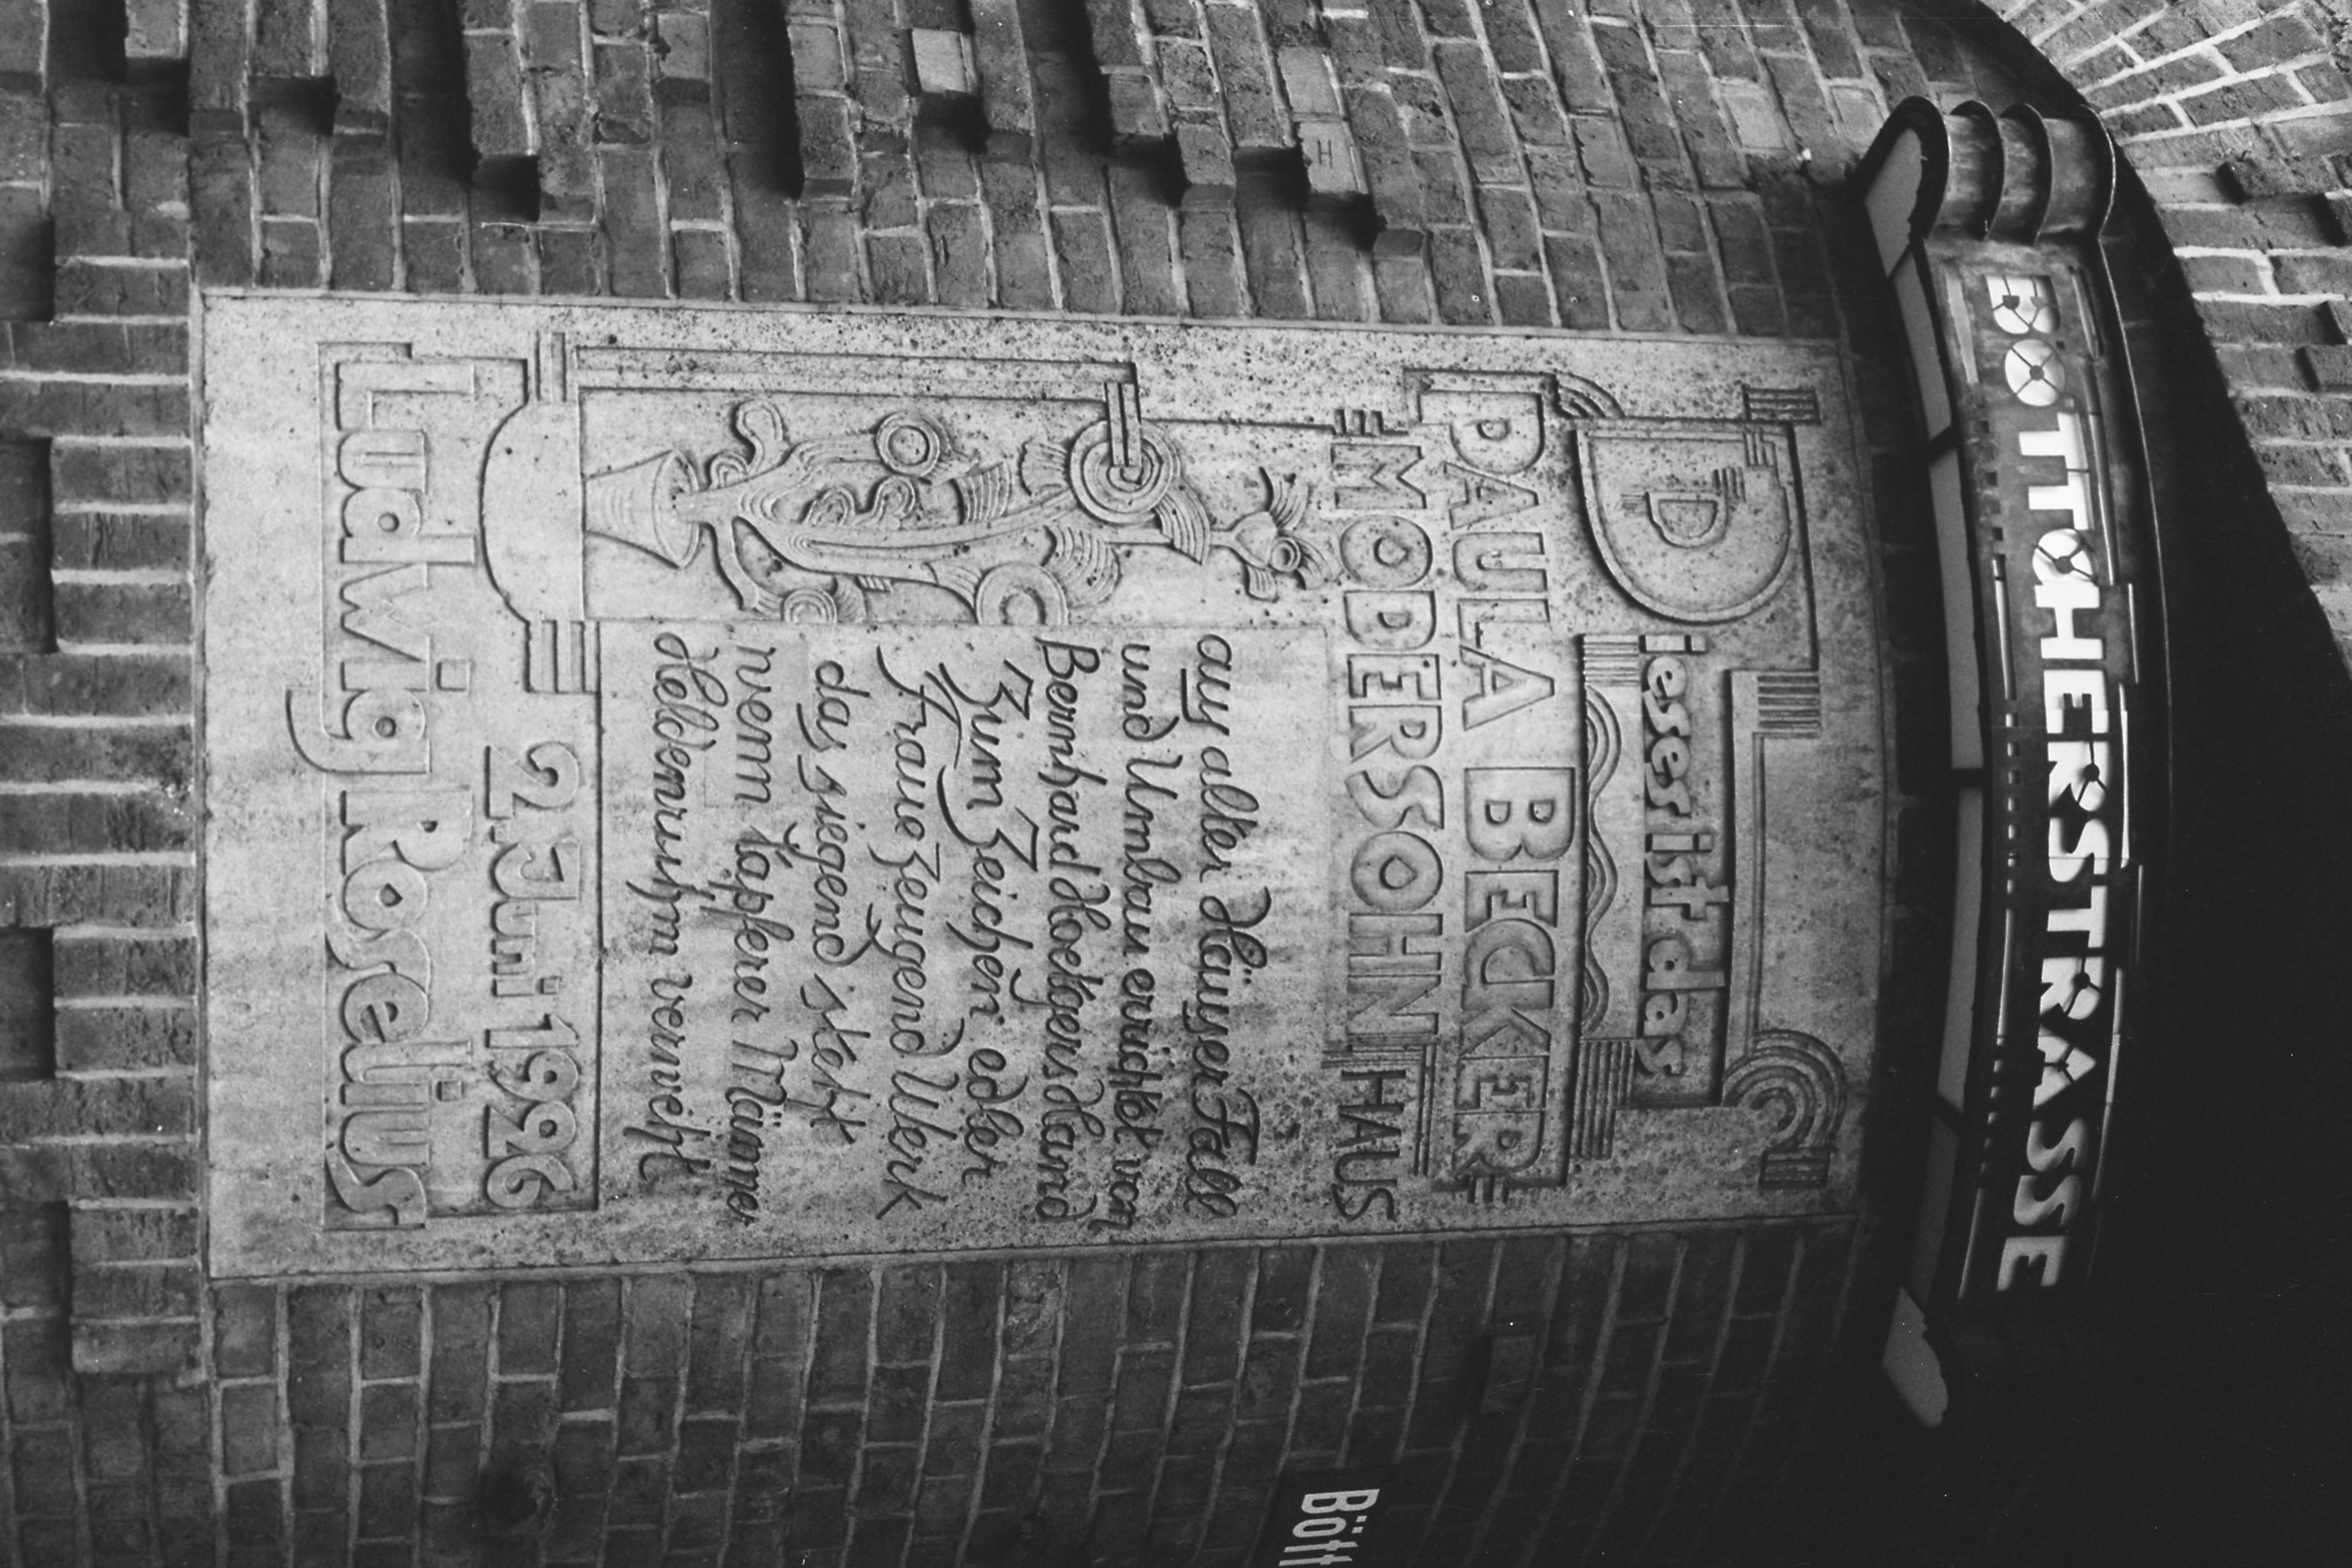 BÖTTCHERSTRASSE
Dieses ist das
PAULA BECKER
MODERSOHN HAUS
aus alter Häuser Fall
und Umbau errichtet von
Bernhard Hoetgers Hand
Zum Zeichen edler
Fraue zeugend Werk
das siegend steht
wenn tapferer Männer
Heldenruhm verweht
2. Juni 1926
Ludwig Roselius
Bött
H